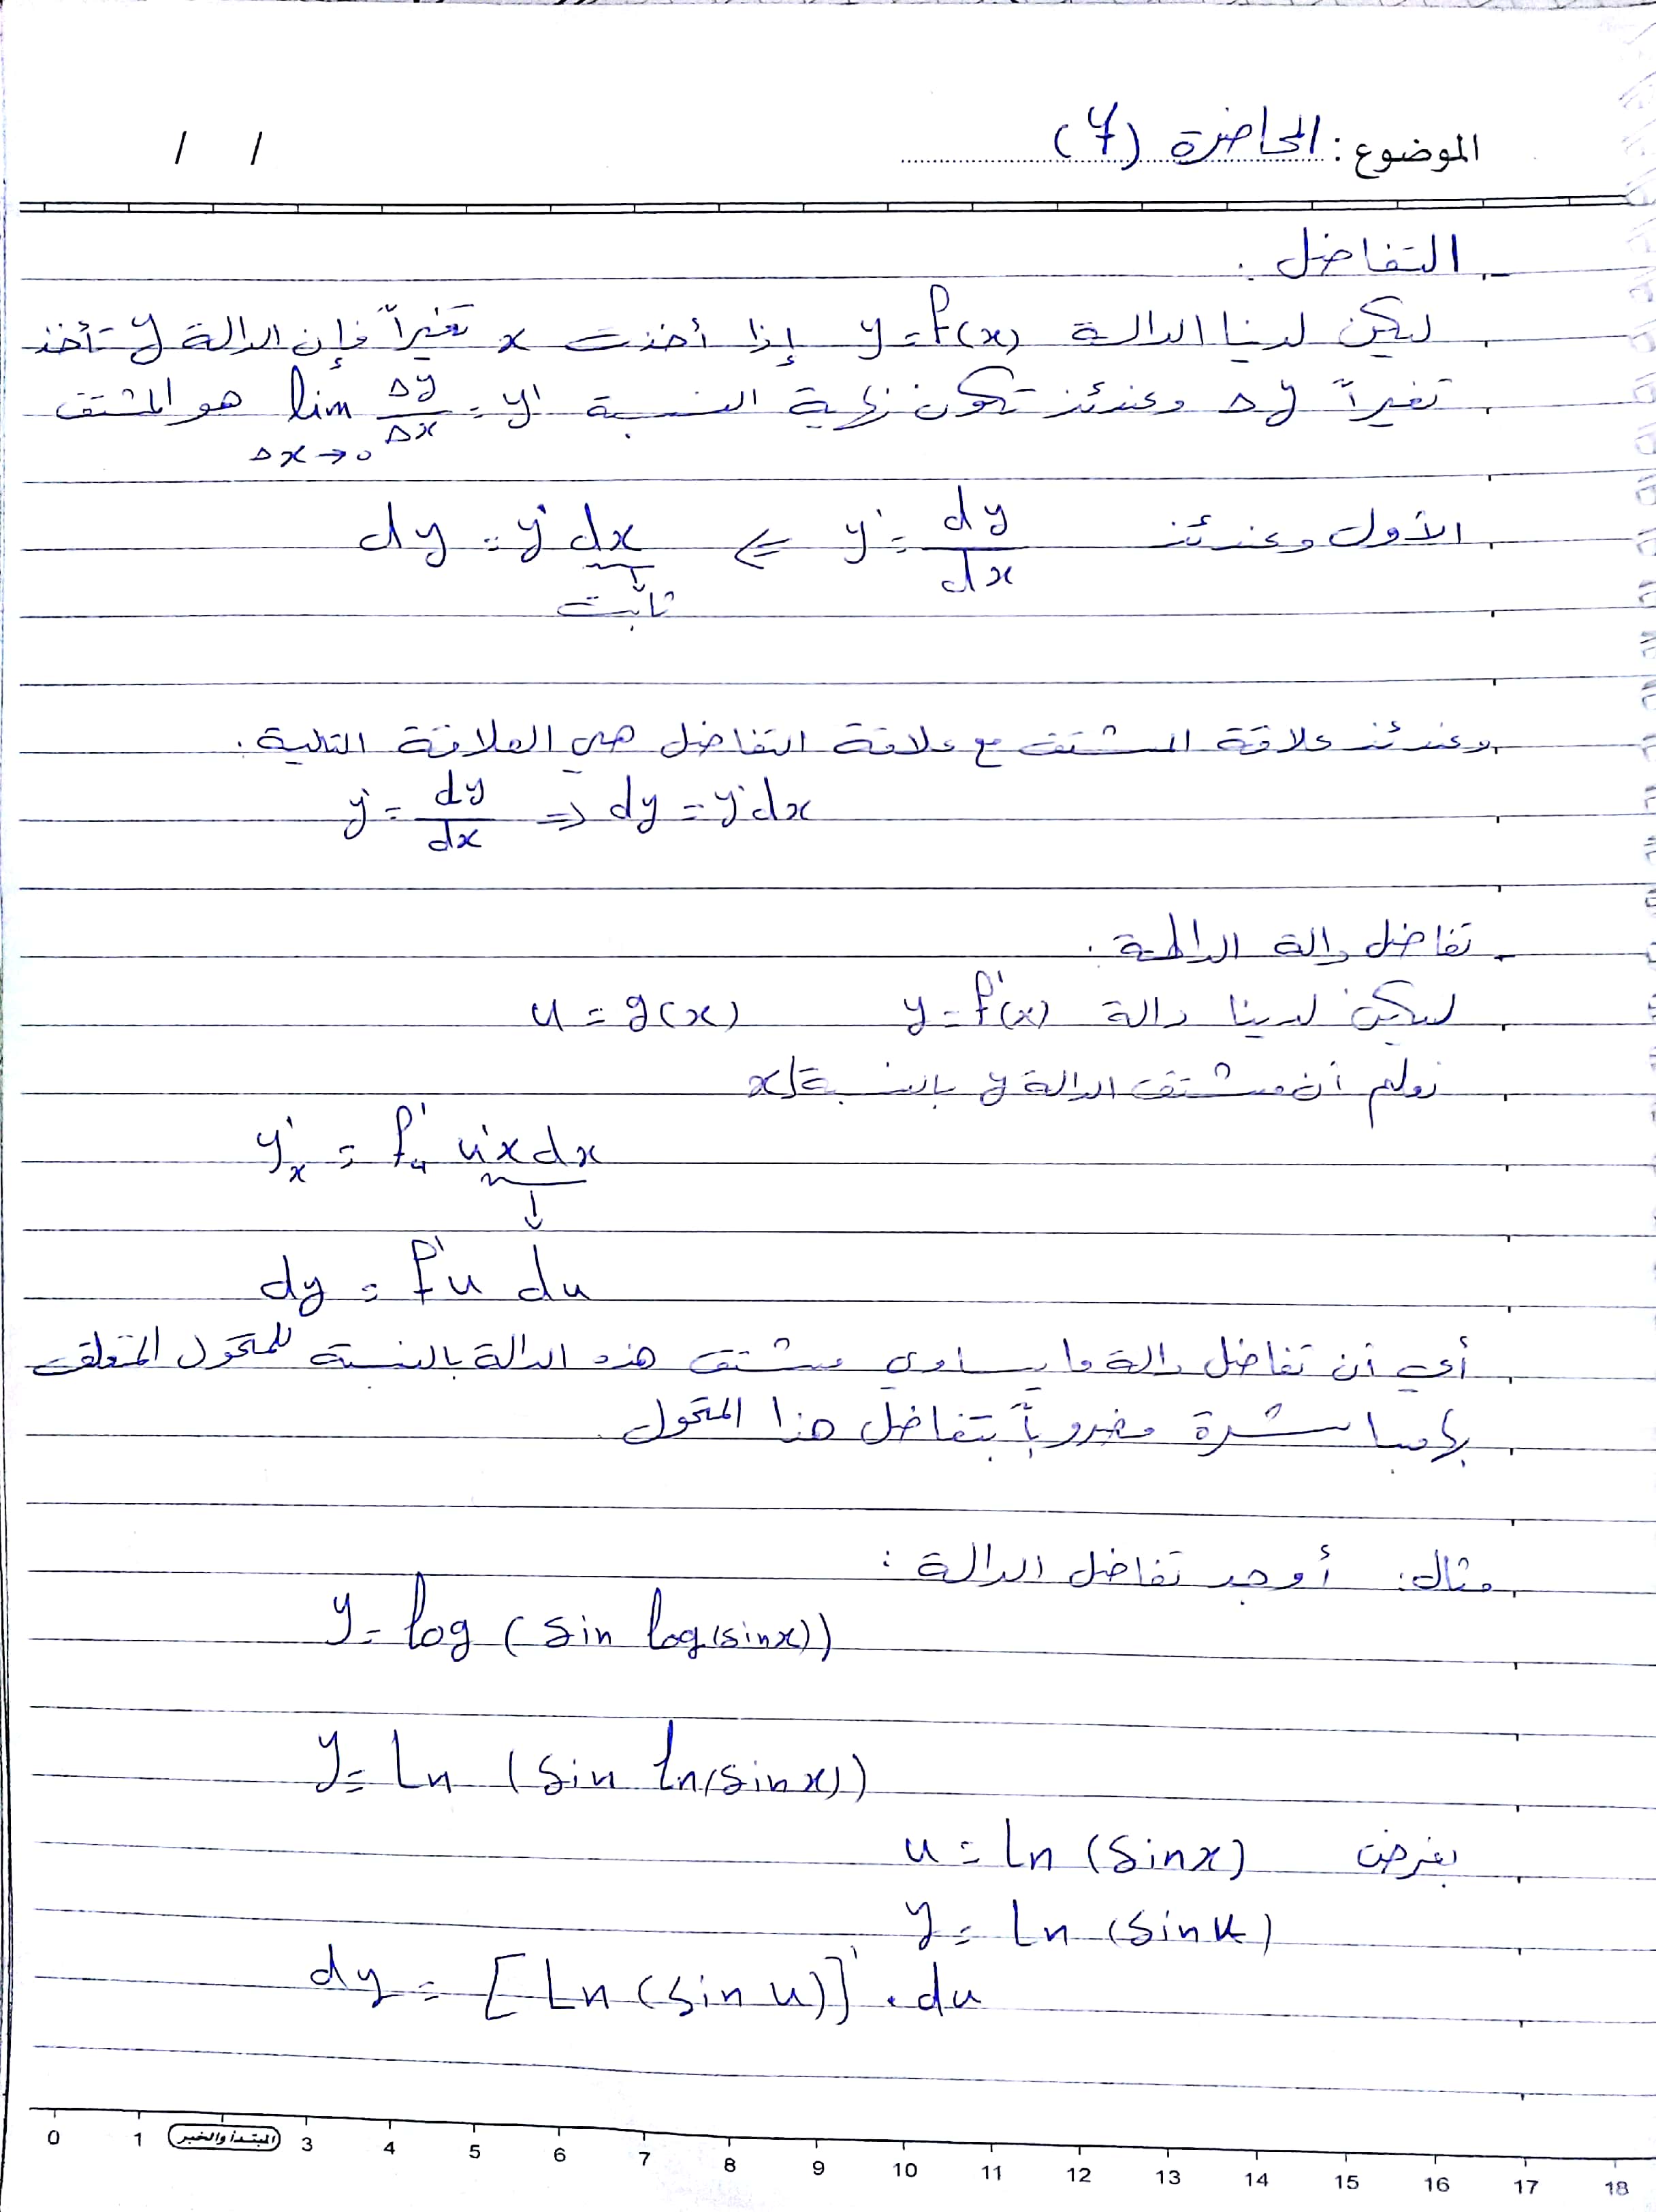 الموضوع: المحاضرة (7) / /
التفاضل:
ليكن لدينا الدالة y=f(x) إذا أخذت x تغيراً فإن الدالة y تأخذ
تغيراً Δy وعندئذ تكون نهاية النسبة y' = lim Δy/Δx هو المشتق
Δx→0
الأول وعندئذ y' = dy/dx ⇒ dy = y' dx
ثابت
وعندئذ علاقة المشتق مع علاقة التفاضل هي العلاقة التالية.
y' = dy/dx ⇒ dy = y' dx
تفاضل دالة الدالة.
ليكن لدينا دالة y = f'(x) u = g(x)
نعلم أن مشتق الدالة y بالنسبة لـ x
y'x = f'u u'x dx
↓
dy = f'u du
أي أن تفاضل دالة ما يساوي مشتق هذه الدالة بالنسبة للمتحول المتعلقة
بها مباشرة مضروباً بتفاضل هذا المتحول.
مثال: أوجد تفاضل الدالة:
y = log (sin log(sinx))
y = Ln (sin ln(sinx))
بفرض u = Ln (sinx)
y = Ln (sinu)
dy = [Ln (sin u)]' . du
0 1 المبتدأ والخبر 3 4 5 6 7 8 9 10 11 12 13 14 15 16 17 18